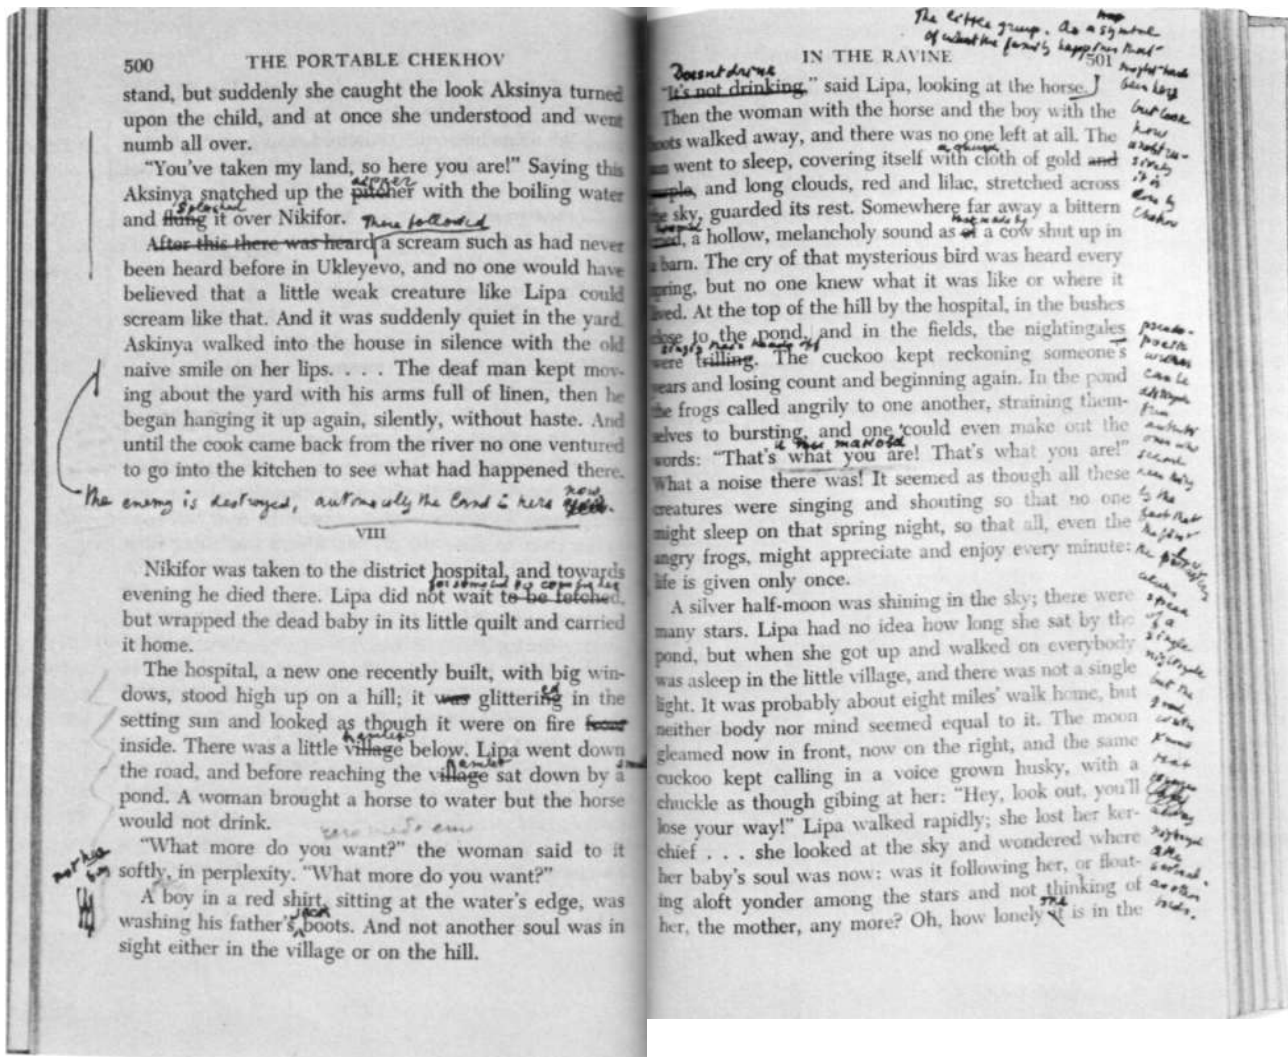 500 THE PORTABLE CHEKHOV
stand, but suddenly she caught the look Aksinya turned
upon the child, and at once she understood and went
numb all over.
"You've taken my land, so here you are!" Saying this
dipper
Aksinya snatched up the pitcher with the boiling water
splashed
and flung it over Nikifor.
There followed
After this there was heard a scream such as had never
been heard before in Ukleyevo, and no one would have
believed that a little weak creature like Lipa could
scream like that. And it was suddenly quiet in the yard.
Askinya walked into the house in silence with the old
naive smile on her lips. . . . The deaf man kept mov-
ing about the yard with his arms full of linen, then he
began hanging it up again, silently, without haste. And
until the cook came back from the river no one ventured
to go into the kitchen to see what had happened there.
now
the enemy is destroyed, the land is hers
VIII
Nikifor was taken to the district hospital, and towards
evening he died there. Lipa did not wait to be fetched,
but wrapped the dead baby in its little quilt and carried
it home.
The hospital, a new one recently built, with big win-
dows, stood high up on a hill; it was glittering in the
ed
setting sun and looked as though it were on fire from
hamlet
inside. There was a little village below. Lipa went down
hamlet small
the road, and before reaching the village sat down by a
pond. A woman brought a horse to water but the horse
would not drink.
"What more do you want?" the woman said to it
not her
softly, in perplexity. "What more do you want?"
A boy in a red shirt, sitting at the water's edge, was
washing his father's boots. And not another soul was in
sight either in the village or on the hill.
The little group. As a symbol
of what the family happiness that
IN THE RAVINE 501
might have
been hers
but look
how
it is
done by
Chekhov
Doesn't drink
"It's not drinking," said Lipa, looking at the horse.
Then the woman with the horse and the boy with the
boots walked away, and there was no one left at all. The
sun went to sleep, covering itself with cloth of gold and
purple, and long clouds, red and lilac, stretched across
the sky, guarded its rest. Somewhere far away a bittern
that made by
cried, a hollow, melancholy sound as of a cow shut up in
a barn. The cry of that mysterious bird was heard every
spring, but no one knew what it was like or where it
lived. At the top of the hill by the hospital, in the bushes
close to the pond, and in the fields, the nightingales
singing their heads off
were trilling. The cuckoo kept reckoning someone's
years and losing count and beginning again. In the pond
the frogs called angrily to one another, straining them-
selves to bursting, and one could even make out the
words: "That's what you are! That's what you are!"
What a noise there was! It seemed as though all these
creatures were singing and shouting so that no one
might sleep on that spring night, so that all, even the
angry frogs, might appreciate and enjoy every minute:
life is given only once.
A silver half-moon was shining in the sky; there were
many stars. Lipa had no idea how long she sat by the
pond, but when she got up and walked on everybody
was asleep in the little village, and there was not a single
light. It was probably about eight miles' walk home, but
neither body nor mind seemed equal to it. The moon
gleamed now in front, now on the right, and the same
cuckoo kept calling in a voice grown husky, with a
chuckle as though gibing at her: "Hey, look out, you'll
lose your way!" Lipa walked rapidly; she lost her ker-
chief . . . she looked at the sky and wondered where
her baby's soul was now: was it following her, or float-
ing aloft yonder among the stars and not thinking of
her, the mother, any more? Oh, how lonely it is in the
pseudo-
poetic
writers
can be
from
authentic
ones
by the
fact that
speak
of a
single
nightingale
but the
good
writer
knows
that
nightingales
are
birds.